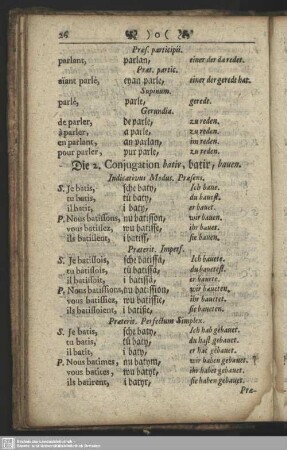 26 ( o )
Præs. participii.
parlant, parlan, einer der da redet.
Præt. partic.
aïant parlé, eyan parle, einer der geredt hat.
Supinum.
parlé, parle, geredt.
Gerundia.
de parler, de parle, zu reden.
à parler, a parle, zu reden.
en parlant, an parlan, im reden.
pour parler, pur parle, zu reden.
Die 2. Conjugation batir, batir, bauen.
Indicativus Modus, Præsens.
S. Je batis, sche baty, Ich baue.
tu batis, tü baty, du bauest.
il batit, i baty, er bauet.
P. Nous batissons, nu batisson, wir bauen.
vous batissez, wu batisse, ihr bauet.
ils batissent, i batiss, sie bauen.
Præterit. Imperf.
S. Je batissois, sche batissä, Ich bauete.
tu batissois, tü batissä, du bauetest.
il batissoit, i batissä, er bauete.
P. Nous batissions, nu batission, wir baueten.
vous batissiez, wu batissie, ihr bauetet.
ils batissoient, i batisse, sie baueten.
Præterit. Perfectum Simplex.
S. Je batis, sche baty, Ich hab gebauet.
tu batis, tü baty, du hast gebauet.
il batit, i baty, er hat gebauet.
P. Nous batimes, nu batym, wir haben gebauet.
vous batites, wu batyt, ihr habet gebauet.
ils batirent, i batyr, sie haben gebauet.
Præ-